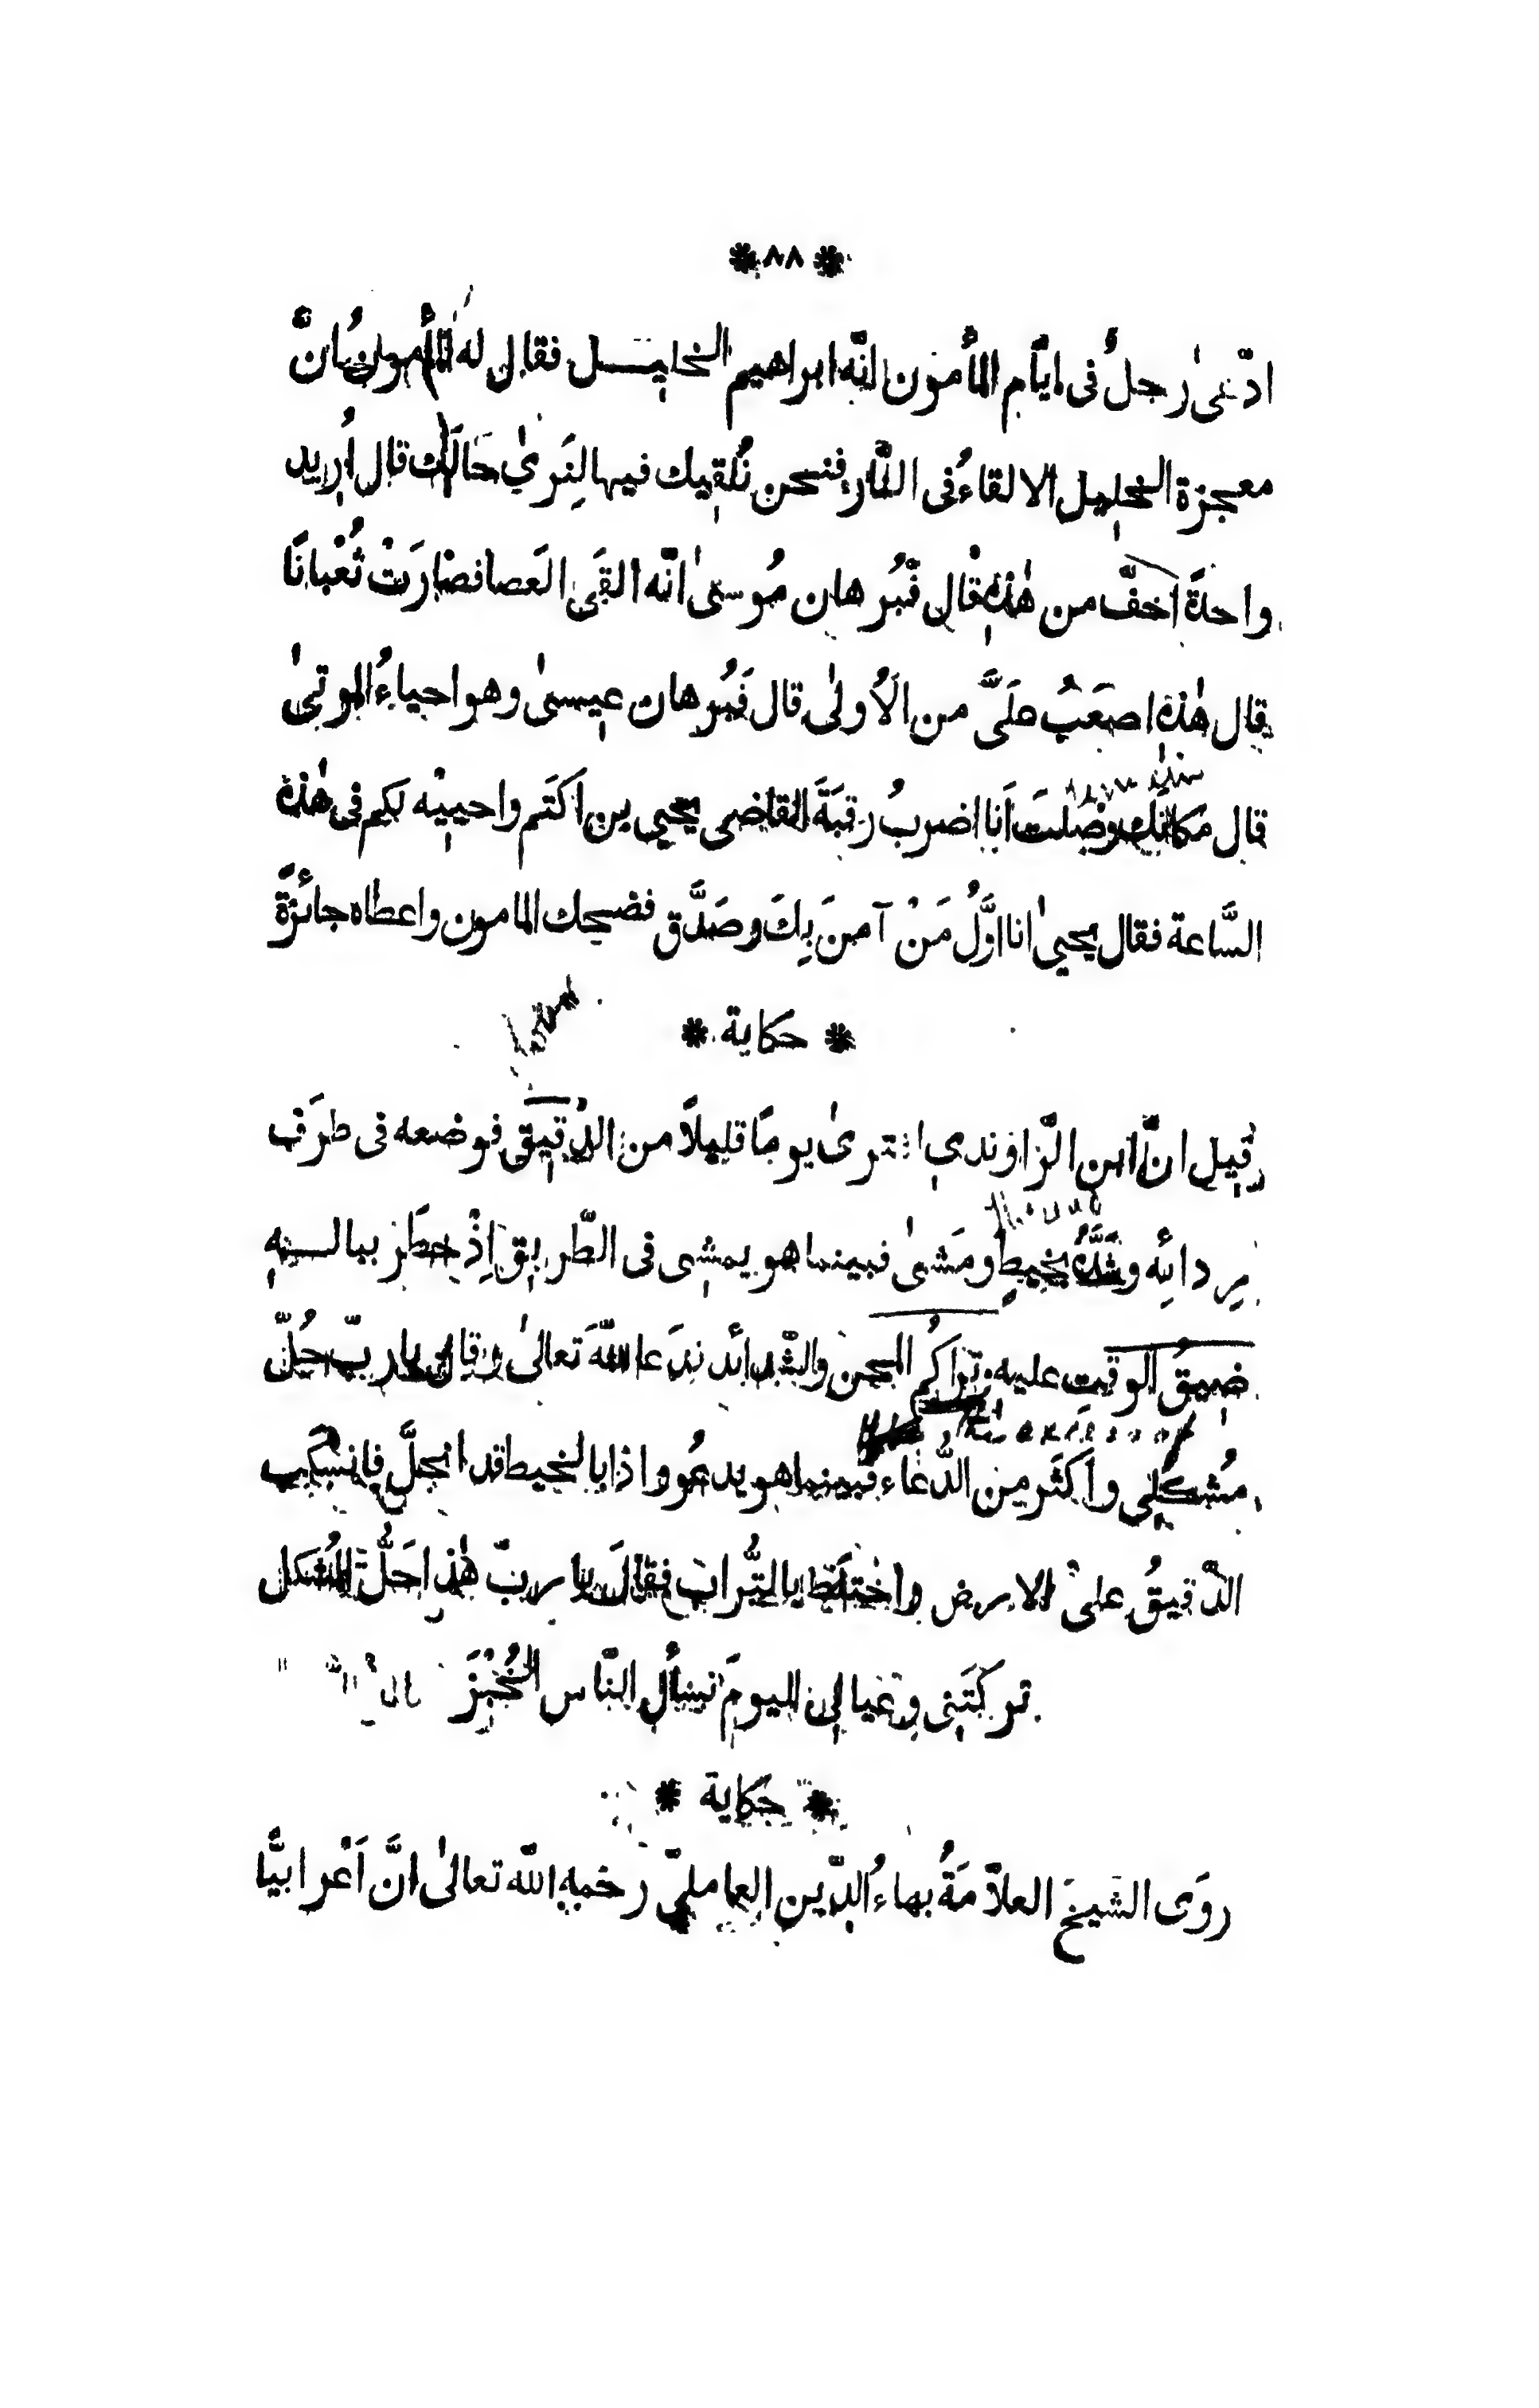 * ٨٨ *
ادّعىٰ رجلٌ فى ايّام المأمون انّه ابراهيم الخليل فقال له المأمون انّ
معجزة الخليل الالقاءُ فى النّار فنحن نُلقيك فيها لِنَرىٰ حالَك قال أُريد
واحدةً اخفّ من هٰذه قال فبُرهان مُوسىٰ انّه القَى العَصا فصَارَتْ ثُعْبانًا
قال هٰذه اصعَبُ علَىَّ من الاُولىٰ قال فَبُرهان عيسىٰ وهو احياءُ الموتىٰ
قال مَكانَك وصَلتَ اَنا اضربُ رقبَةَ القاضى يحيى بن اَكتَم واحييْه لكم فى هٰذه
السَّاعة فقال يحيىٰ انا اوَّلُ مَنْ آمنَ بِكَ وصَدَّق فضحك المامون واعطاه جائزةً
* حكاية *
قيل انّ ابن الرّاوندي اشترىٰ يومًا قليلاً من الدّقيق فوضعه فى طرَف
رِدائِه وشَدَّهُ بخيطٍ ومَشىٰ فبينما هو يمشى فى الطّريق اِذْ خطَر ببالــه
ضيقُ الوقت عليه وتَراكُم المحن والشّدائد فدَعا اللّهَ تعالىٰ وقال يا ربّ حُلّ
مُشكِلِى واَكثَر من الدُّعَاء فبينما هو يدعُو واذا بالخيط قد انحلَّ فانسكب
الدّقيقُ علىٰ الارض واخْتلَط بالتُّراب فقالَ يا ربّ هٰذا حَلُّ المُشكل
تركتَنى وعيالى اليومَ نسألُ النّاس الخُبْزَ
* حكاية *
روَى الشيخ العلاّمَةُ بهاءُ الدّين العاملىّ رحمه اللّه تعالىٰ انَّ اَعْرابيًّا